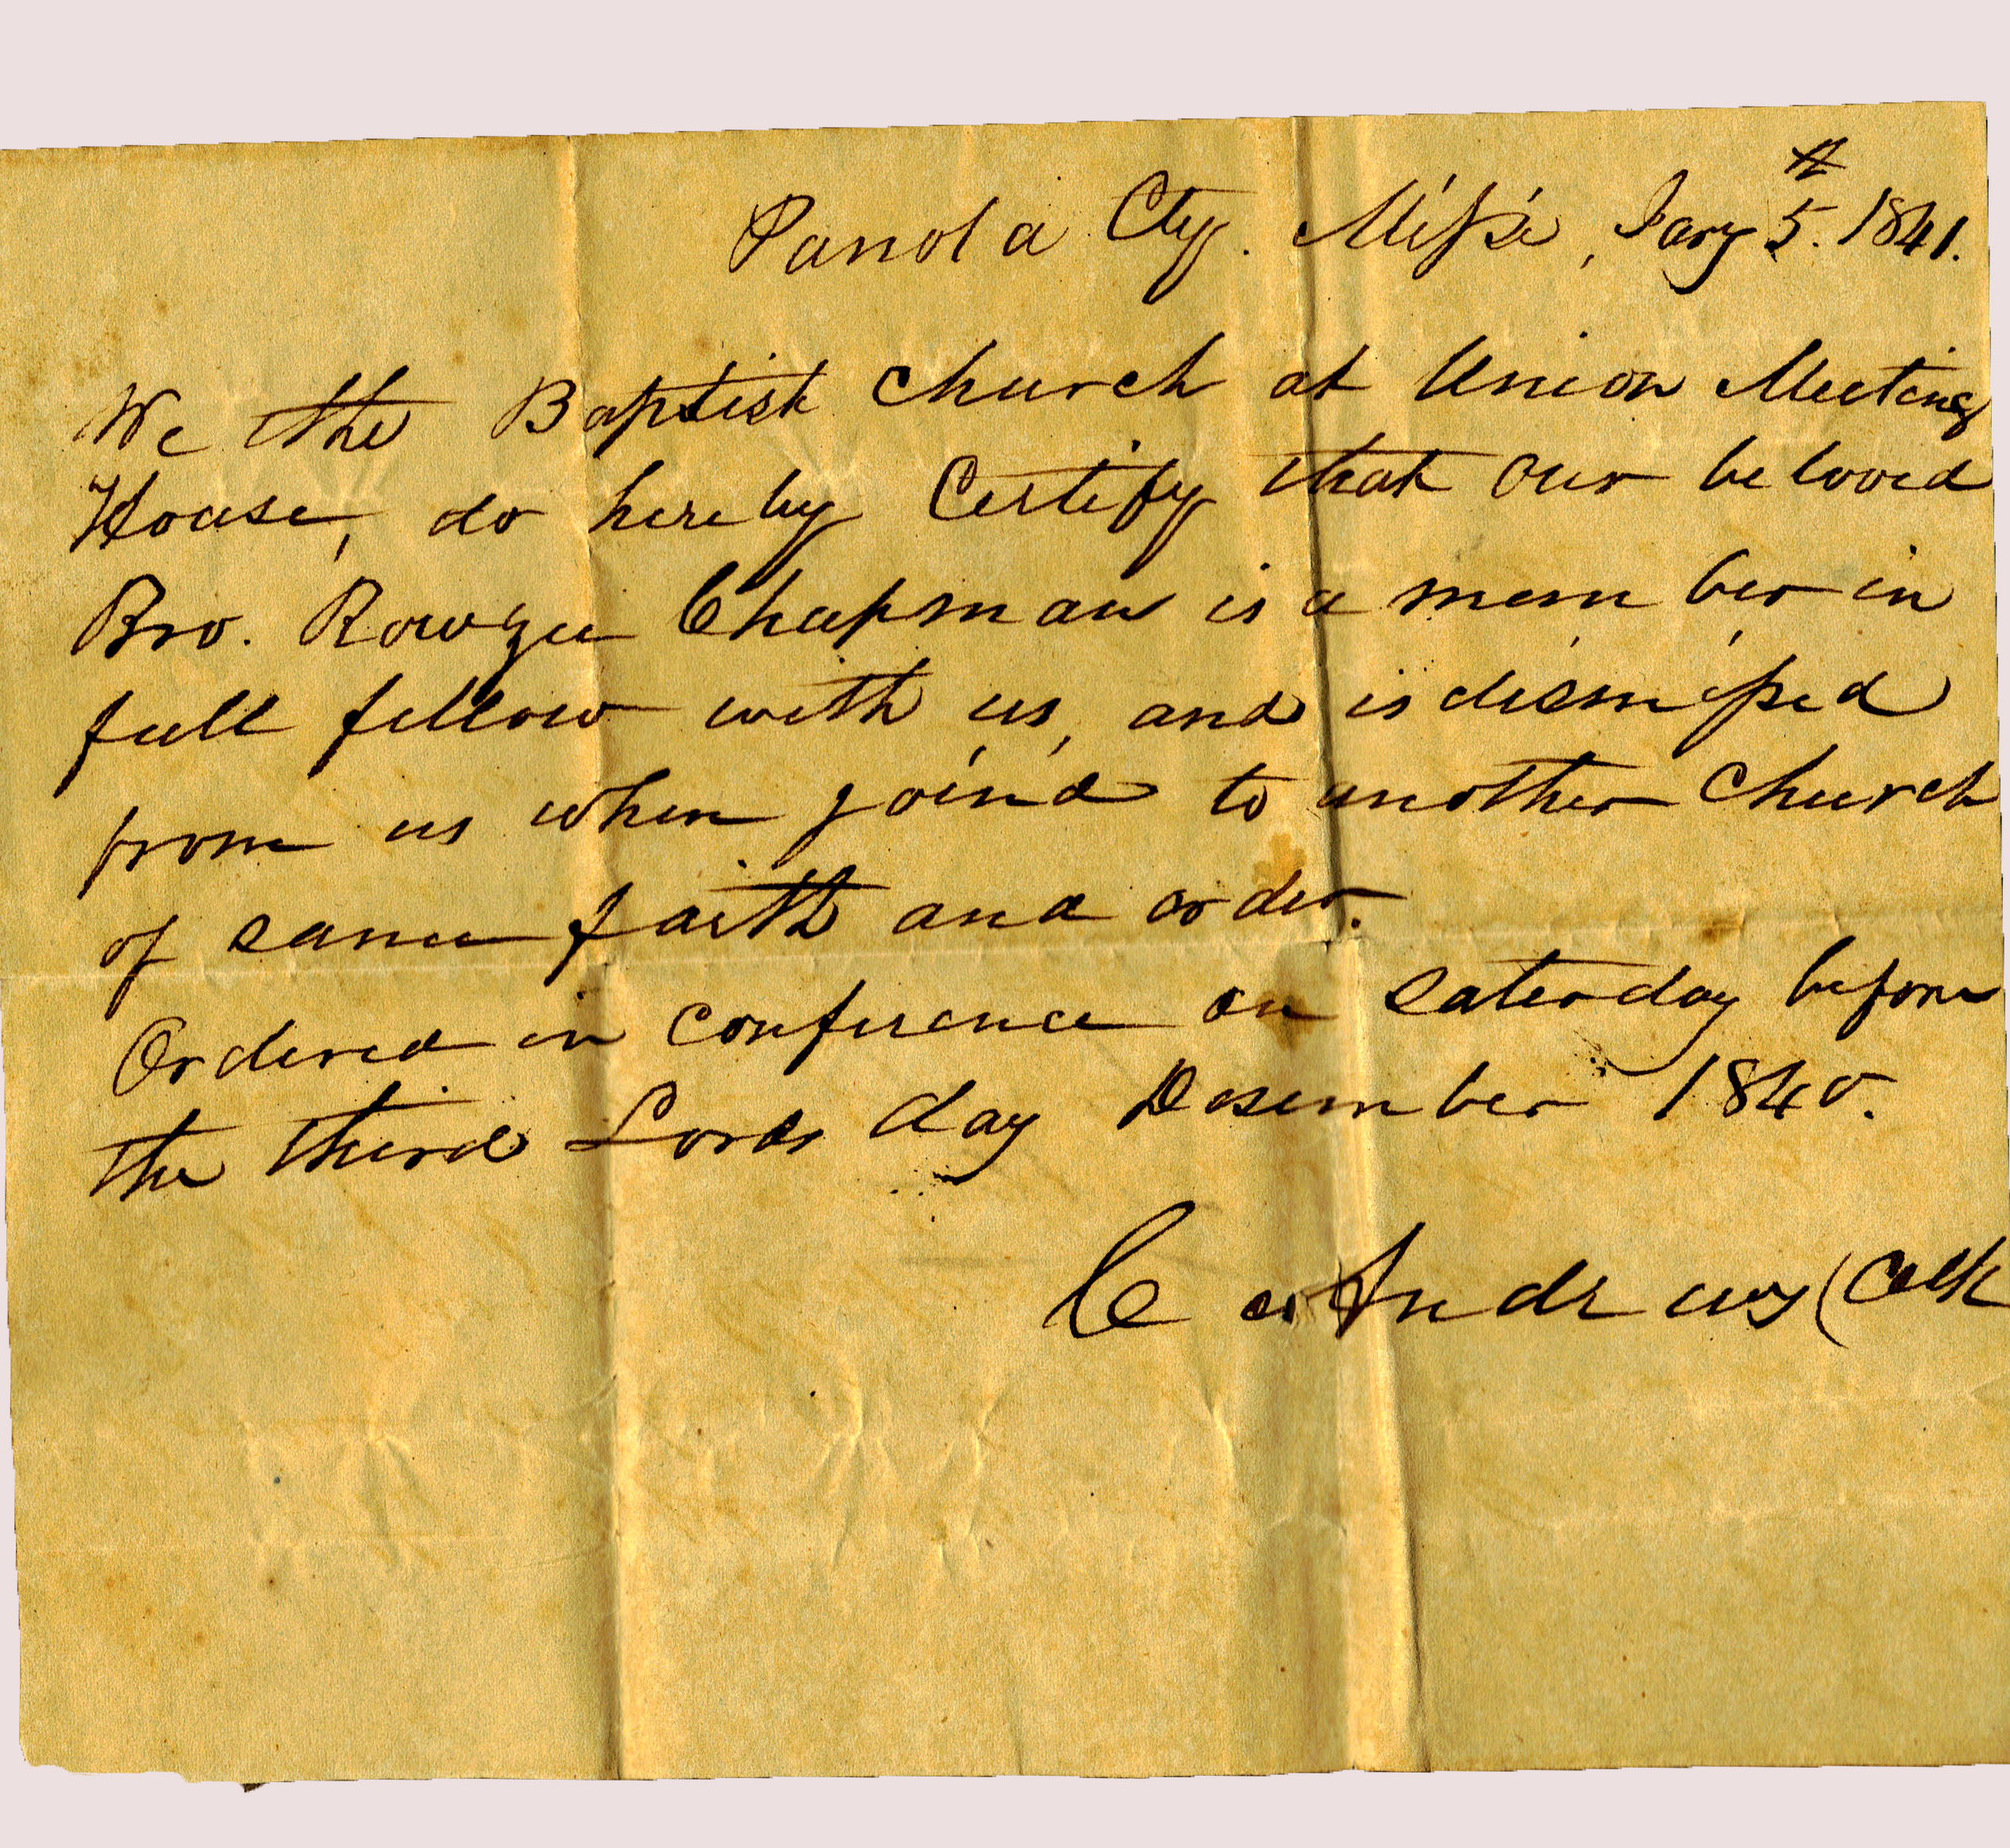 Panola Cty. Missi, Jany 5th. 1841.
We the Baptist church at Union Meeting
House, do hereby Certify that our beloved
Bro. Rowzee Chapman is a member in
full fellow with us, and is dismissed
from us when joind to another Church
of same faith and order.
Ordered in conference on Saterday before
the third Lords day Desember 1840.
Andrews (Clk